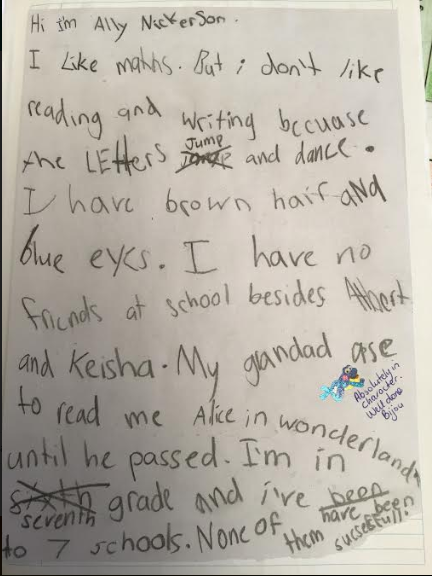 Hi I'm Ally Nickerson.
I Like maths. But i don't like
reading and writing becuase
the LEtters Jump and dance.
I have brown hair and
blue eyes. I have no
friends at school besides Albert
and Keisha. My grandad use
to read me Alice in wonderland,
until he passed. I'm in
sixth seventh grade and i've been have been
to 7 schools. None of them sucsessfull.
Absolutely in
character.
Well done
Bijou